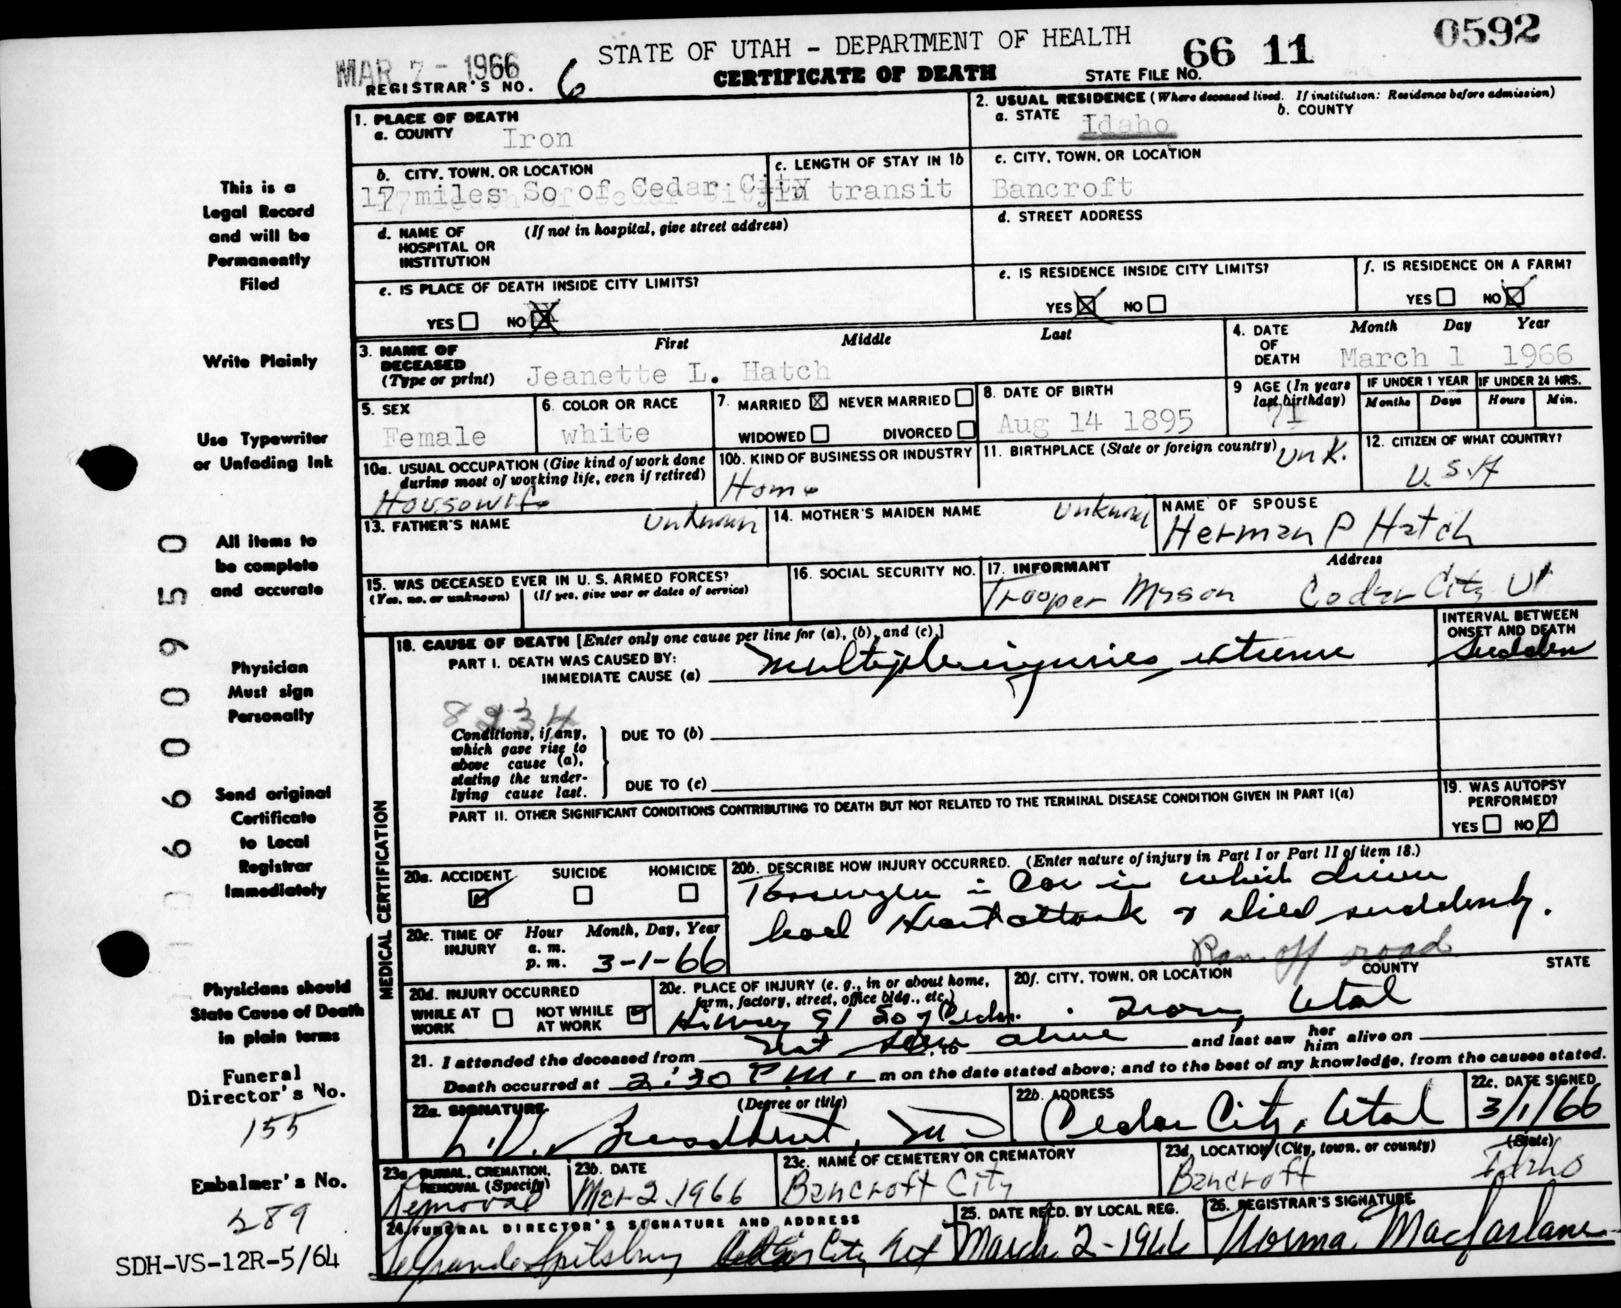 MAR 7 - 1966
STATE OF UTAH - DEPARTMENT OF HEALTH
66 11
0592
REGISTRAR'S NO. 6
CERTIFICATE OF DEATH
STATE FILE NO.
1. PLACE OF DEATH
a. COUNTY Iron
2. USUAL RESIDENCE (Where deceased lived. If institution: Residence before admission)
a. STATE Idaho
b. COUNTY
b. CITY, TOWN, OR LOCATION
17 miles So of Cedar City
c. LENGTH OF STAY IN 1b
in transit
c. CITY, TOWN, OR LOCATION
Bancroft
d. NAME OF HOSPITAL OR INSTITUTION
(If not in hospital, give street address)
d. STREET ADDRESS
e. IS PLACE OF DEATH INSIDE CITY LIMITS?
YES NO X
e. IS RESIDENCE INSIDE CITY LIMITS?
YES X NO
f. IS RESIDENCE ON A FARM?
YES NO X
3. NAME OF DECEASED
(Type or print)
First Middle Last
Jeanette L. Hatch
4. DATE OF DEATH
Month Day Year
March 1 1966
5. SEX
Female
6. COLOR OR RACE
white
7. MARRIED X NEVER MARRIED
WIDOWED DIVORCED
8. DATE OF BIRTH
Aug 14 1895
9 AGE (In years last birthday)
71
IF UNDER 1 YEAR
Months Days
IF UNDER 24 HRS.
Hours Min.
10a. USUAL OCCUPATION (Give kind of work done during most of working life, even if retired)
Housewife
10b. KIND OF BUSINESS OR INDUSTRY
Home
11. BIRTHPLACE (State or foreign country)
Unk.
12. CITIZEN OF WHAT COUNTRY?
U.S.A
13. FATHER'S NAME
Unknown
14. MOTHER'S MAIDEN NAME
Unknown
NAME OF SPOUSE
Herman P Hatch
15. WAS DECEASED EVER IN U. S. ARMED FORCES?
(Yes, no, or unknown) (If yes, give war or dates of service)
16. SOCIAL SECURITY NO.
17. INFORMANT
Address
Trooper Mason Cedar City Ut
18. CAUSE OF DEATH [Enter only one cause per line for (a), (b), and (c).]
PART I. DEATH WAS CAUSED BY:
IMMEDIATE CAUSE (a) Multiple injuries, extreme
INTERVAL BETWEEN ONSET AND DEATH
Sudden
8234
Conditions, if any, which gave rise to above cause (a), stating the underlying cause last.
DUE TO (b)
DUE TO (c)
PART II. OTHER SIGNIFICANT CONDITIONS CONTRIBUTING TO DEATH BUT NOT RELATED TO THE TERMINAL DISEASE CONDITION GIVEN IN PART I(a)
19. WAS AUTOPSY PERFORMED?
YES NO
MEDICAL CERTIFICATION
20a. ACCIDENT SUICIDE HOMICIDE
20b. DESCRIBE HOW INJURY OCCURRED. (Enter nature of injury in Part I or Part II of item 18.)
Passenger in Car in which driver
had Heart attack & died suddenly.
Ran off road
20c. TIME OF INJURY
Hour a. m. p. m.
Month, Day, Year
3-1-66
20d. INJURY OCCURRED
WHILE AT WORK
NOT WHILE AT WORK
20e. PLACE OF INJURY (e. g., in or about home, farm, factory, street, office bldg., etc.)
Hiway 91 So of Cedar.
20f. CITY, TOWN, OR LOCATION COUNTY STATE
Iron, Utah
21. I attended the deceased from Not seen alive to and last saw her him alive on
Death occurred at 2:30 P.M. m on the date stated above; and to the best of my knowledge, from the causes stated.
22a. SIGNATURE
(Degree or title)
Broadbent, MD
22b. ADDRESS
Cedar City, Utah
22c. DATE SIGNED
3/1/66
23a BURIAL, CREMATION, REMOVAL (Specify)
Removal
23b. DATE
Mar 2, 1966
23c. NAME OF CEMETERY OR CREMATORY
Bancroft City
23d. LOCATION (City, town, or county) (State)
Bancroft Idaho
24. FUNERAL DIRECTOR'S SIGNATURE AND ADDRESS
Spilsbury Cedar City Ut
25. DATE RECD. BY LOCAL REG.
March 2-1966
26. REGISTRAR'S SIGNATURE
Norma Macfarlane
This is a
Legal Record
and will be
Permanently
Filed
Write Plainly
Use Typewriter
or Unfading Ink
All items to
be complete
and accurate
Physician
Must sign
Personally
Send original
Certificate
to Local
Registrar
Immediately
Physicians should
State Cause of Death
in plain terms
Funeral
Director's No.
155
Embalmer's No.
289
SDH-VS-12R-5/64
660009550